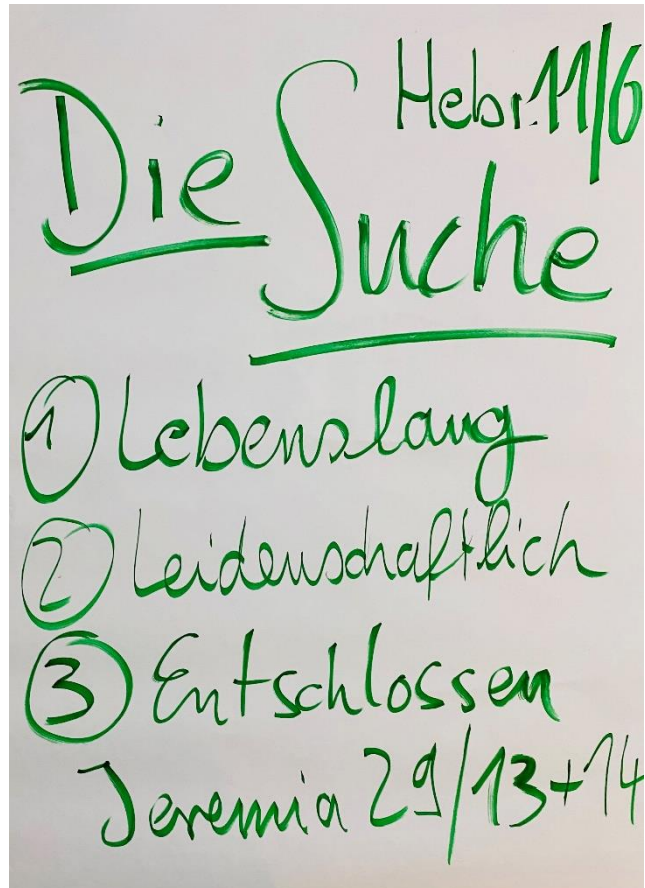 Hebr. 11/6
Die Suche
1 Lebenslang
2 Leidenschaftlich
3 Entschlossen
Jeremia 29/13+14